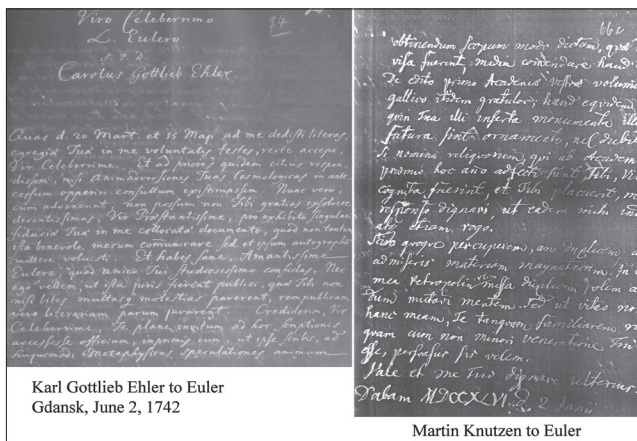 Viro Celeberrimo
L. Eulero
S. P. D.
Carolus Gottlieb Ehler.
Quas d. 20 Mart. et 15 Maji ad me dedisti literas,
egregiæ Tuæ in me voluntatis testes, recte accepi
Vir Celeberrime. Et ad priores quidem citius respon-
dissem, nisi animadversiones Tuas Cosmologicas in ante-
cessum opperiri consultum existimassem. Nunc vero,
cum advenerint, non possum non Tibi gratias exsolvere
decentissimas, Vir Præstantissime, pro exhibito singularis
fiduciæ Tuæ in me collocatæ documento, quod non tantum
ista benevole mecum communicare sed et ipsum autographum
mittere voluisti. Et habes sane, Amantissime
Eulere, quod amico Tui studiosissimo confidas. Nec
ego vellem, ut ista juris fierent publici, quod Tibi non
nisi lites multasque molestias parerent, rempublicam
vero literariam parum juvarent. Crediderim, Vir
Celeberrime, Te plane invitum ad hoc scriptionis
accessisse officium, inprimis cum, ut ipse scribis, ad
hujusmodi metaphysicas speculationes animum
Karl Gottlieb Ehler to Euler
Gdansk, June 2, 1742
obtinendum scopum modo dictum, quæ
visa fuerint, media comendare haud
De edito primo Academiæ vestræ volumine
gallico itidem gratulor; haud equidem
quin Tua illi inserta monumenta
futura sint ornamento, nil dubito
Si nomina reliquorum, qui ab Academia
præmio hoc anno adfecti sunt Tibi, Vir
cognita fuerint, et Tibi placuerit, me
responso dignari, ut eadem mihi
etiam rogo.
Scire quoque percuperem, an duplicem
admiseris materiam magneticam. In
mea Petropolin missa olim
mutavi mentem. Sed ut vites
hanc meam, Te tanquam familiarem
quam cum non minori veneratione Tui
esse, persuasus sis velim.
Vale et me Tuo dignare ulterius
Dabam MDCCXLVI. d. 2 Junii
Martin Knutzen to Euler